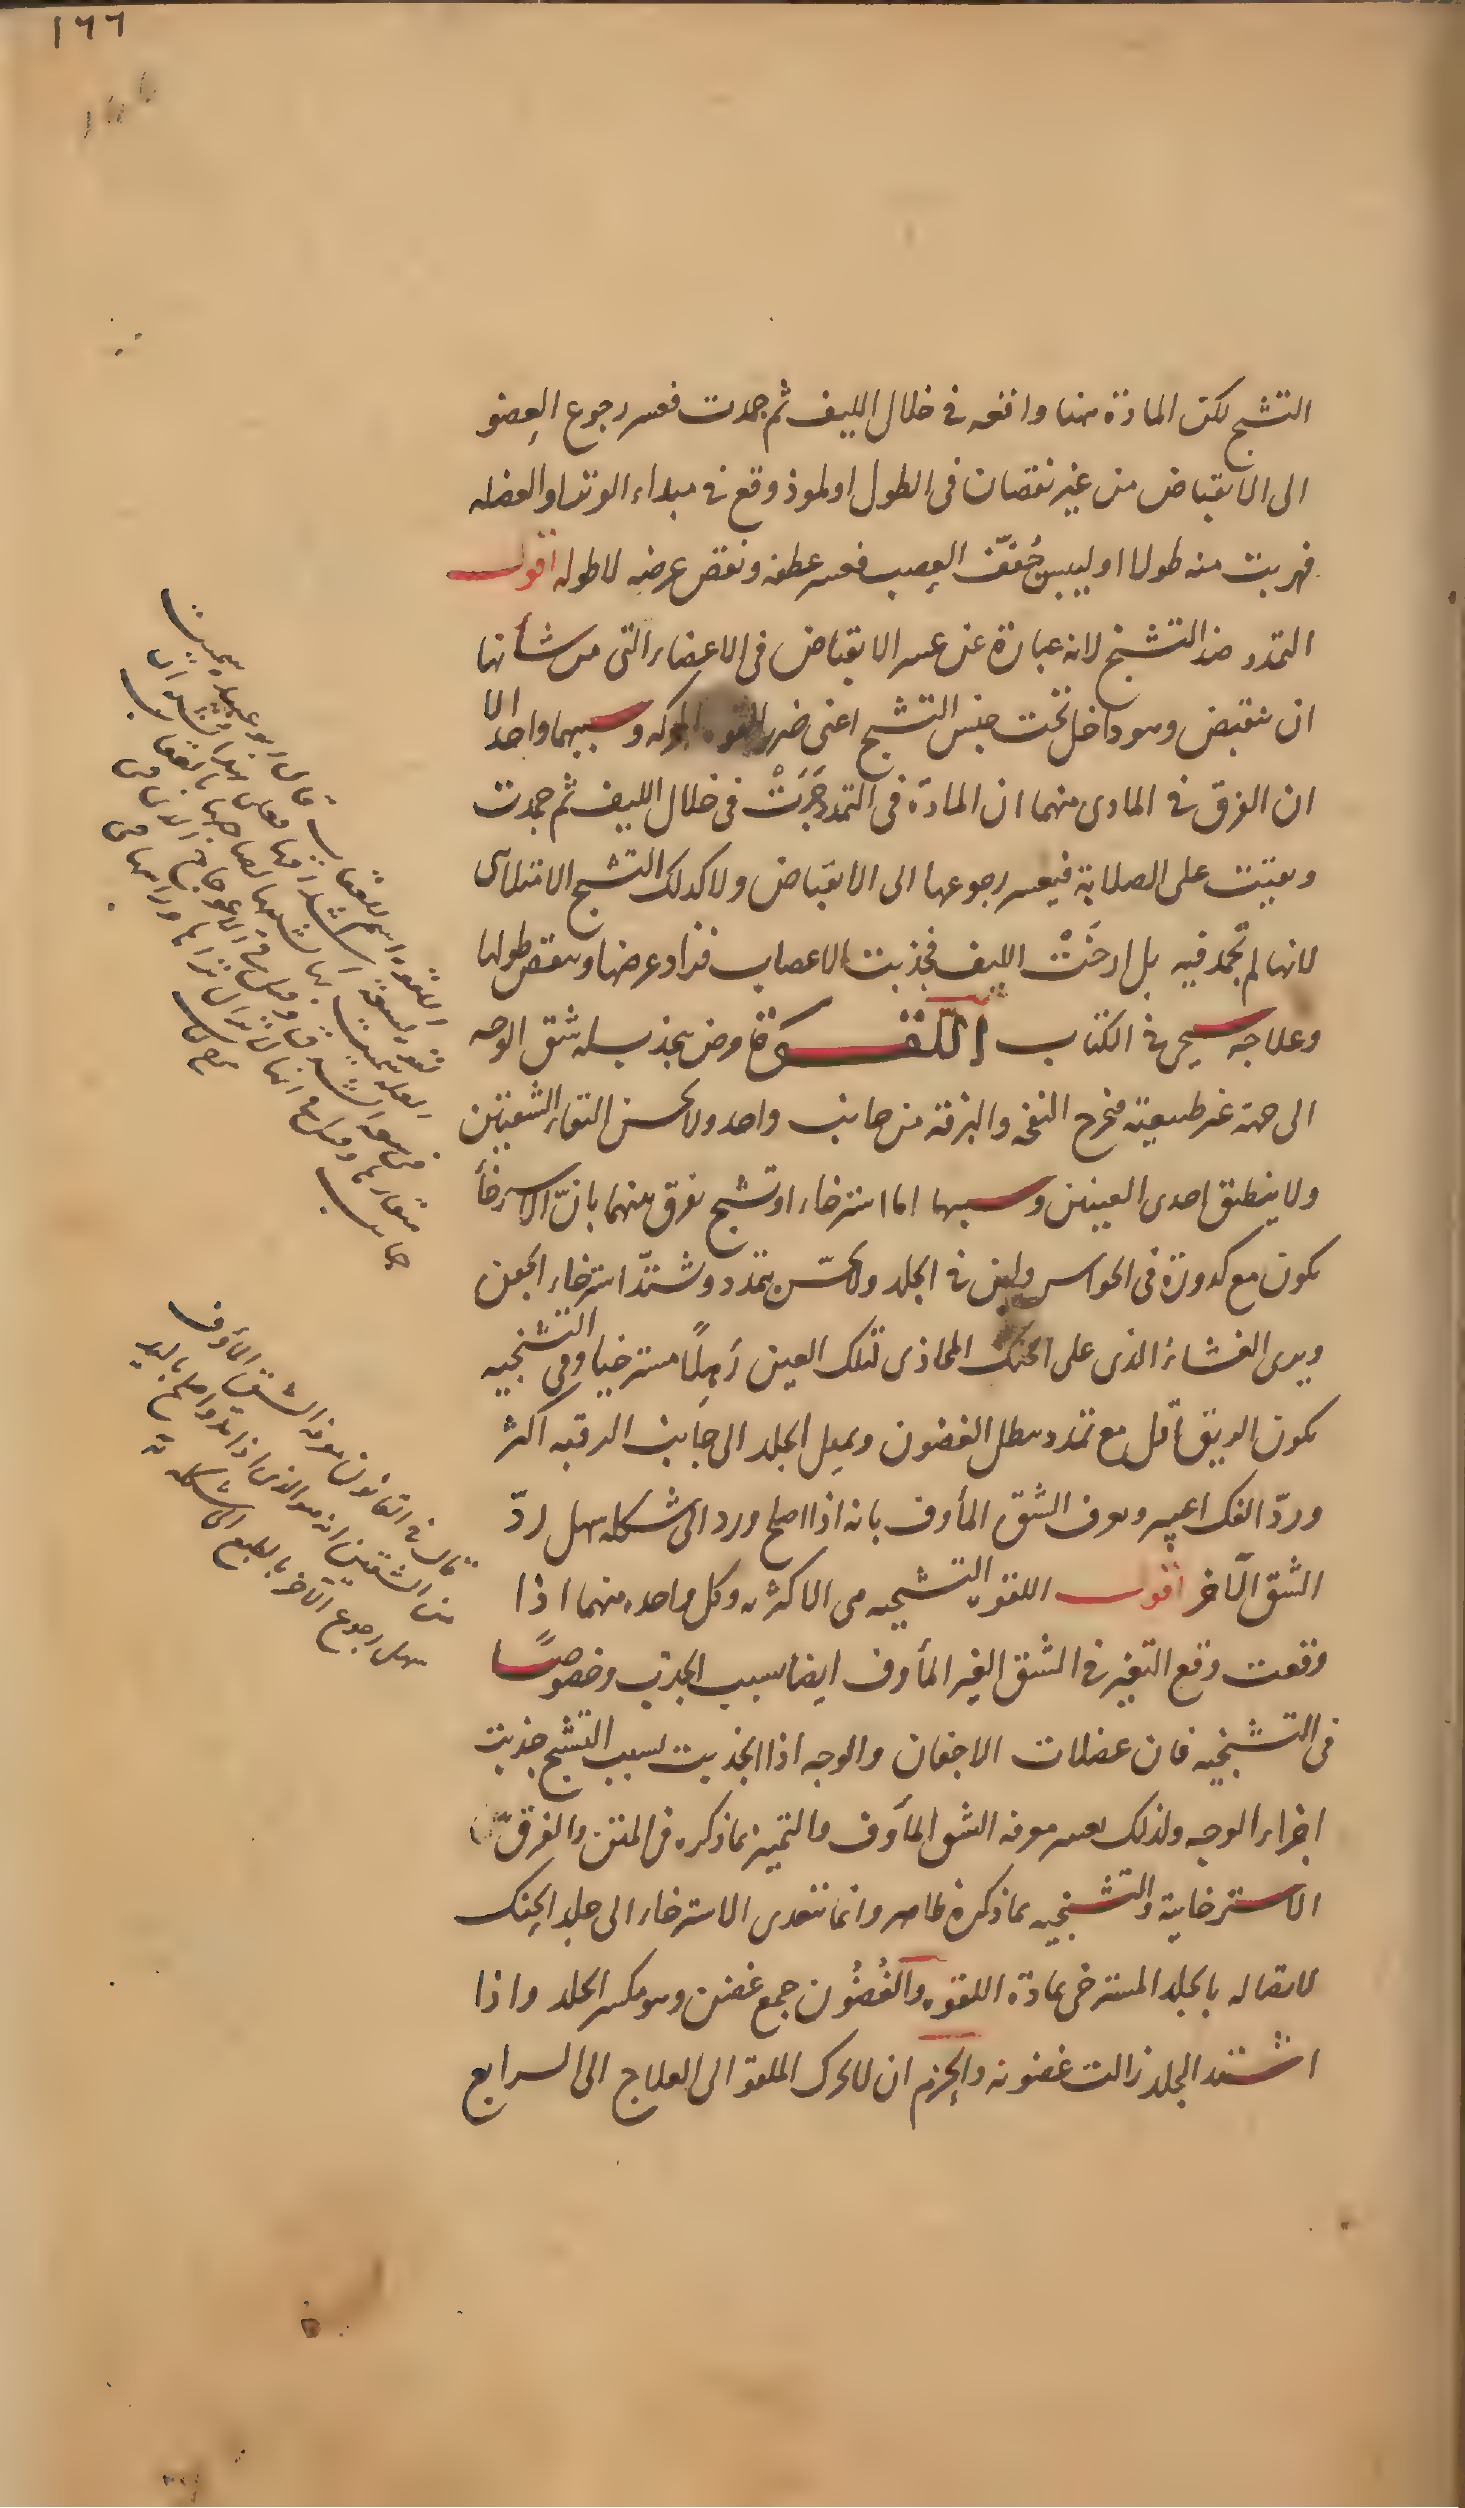 ١٦٦
التشنج لكن المادة هنا واقعه فى خلال الليف ثم جمدت فعسر رجوع العضو
الى الانقباض من غير نقصان فى الطول او لموذ وقع فى مبداء الوتر او العضله
فهربت منه طولا او ليبس جفف العصب فعسر عطفه ونقص عرضه لا طوله اقول
التمدد ضد التشنج لانه عبارة عن عسر الانقباض فى الاعضاء التى من شأنها
ان تنقبض وهو داخل تحت جنس التشنج اعنى ضرر القوه المحركه وسببهما واحد الا
ان الفرق فى المادى منهما ان المادة فى التمدد جَرَتْ فى خلال الليف ثم جمدت
وبقيت على الصلابة فيعسر رجوعها الى الانقباض ولا كذلك التشنج الامتلائى
لانها لم تجمد فيه بل ارخَتْ الليف فجذبت الاعصاب فزاد عرضها ونقص طولها
وعلاجه سيجى فى الكتاب اللَّقْوَة مرض ينجذب له شق الوجه
الى جهة غير طبيعية فيخرج النفخ والبزقة من جانب واحد ولا يحسن التقاء الشفتين
ولا ينطبق احدى العينين وسببها اما استرخاء او تشنج يفرق بينهما بانّ الاسترخأ
يكون مع كدورة فى الحواس ولين فى الجلد ولا يحسّ بتمدد ويشتدّ استرخاء الجفن
ويرى الغشاء الذى على الحنك المحاذى لتلك العين رَهِلاً مسترخيا وفى التشنجيه
يكون الريق اقل مع تمدد يبطل الغضون ويميل الجلد الى جانب الرقبه اكثر
وردّ الفك اعسر ويعرف الشق المأوف بانه اذا اصلح ورد الى شكله سهل ردّ
الشق الآخر اقول اللقوه التشنجيه هى الاكثريه وكل واحده منهما اذا
وقعت وقع التغير فى الشق الغير المأوف ايضا بسبب الجذب وخصوصًا
فى التشنجيه فان عضلات الاجفان والوجه اذا انجذبت بسبب التشنج جذبت
اجزاء الوجه ولذلك يعسر معرفة الشق المأوف والتمييز بما ذكره فى المتن والفرق بين
الاسترخاية والتشنجيه بما ذكره ظاهر وانما تتعدى الاسترخاء الى جلد الحنك
لاتصاله بالجلد المسترخى بمادة اللقوه والغُضُون جمع غضن وهو مكسر الجلد واذا
اشتد الجلد زالت غضونه والحزم ان لا يحرك الملقو الى العلاج الى السابع
اللقوه اسم للعقاب قال ابو عبيد سميت
العله سميت بها لشبهها لصاحبها بالعقاب
جانب
قال فى القانون معرفة الشق المأوف
من الشقين انه هو الذى اذا مد واصلح باليد
سهل رجوع الآخر بالطبع الى شكله